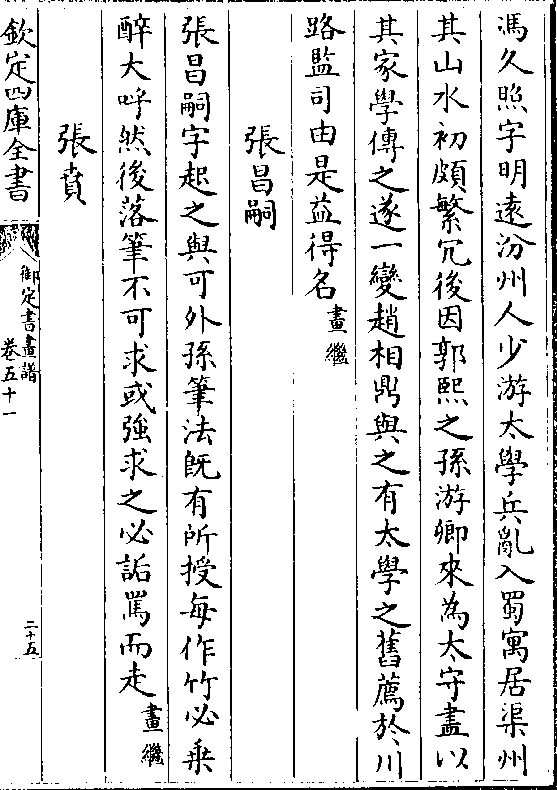 馮久照字明遠汾州人少游太學兵亂入蜀寓居渠州
其山水初頗繁冗後因郭熙之孫游卿來為太守盡以
其家學傳之遂一變趙相鼎與之有太學之舊薦於川
路監司由是益得名畫繼
張昌嗣
張昌嗣字起之與可外孫筆法既有所授每作竹必乗
醉大呼然後落筆不可求或強求之必詬罵而走畫繼
張賁
欽定四庫全書
御定書畫譜
卷五十一
二十五